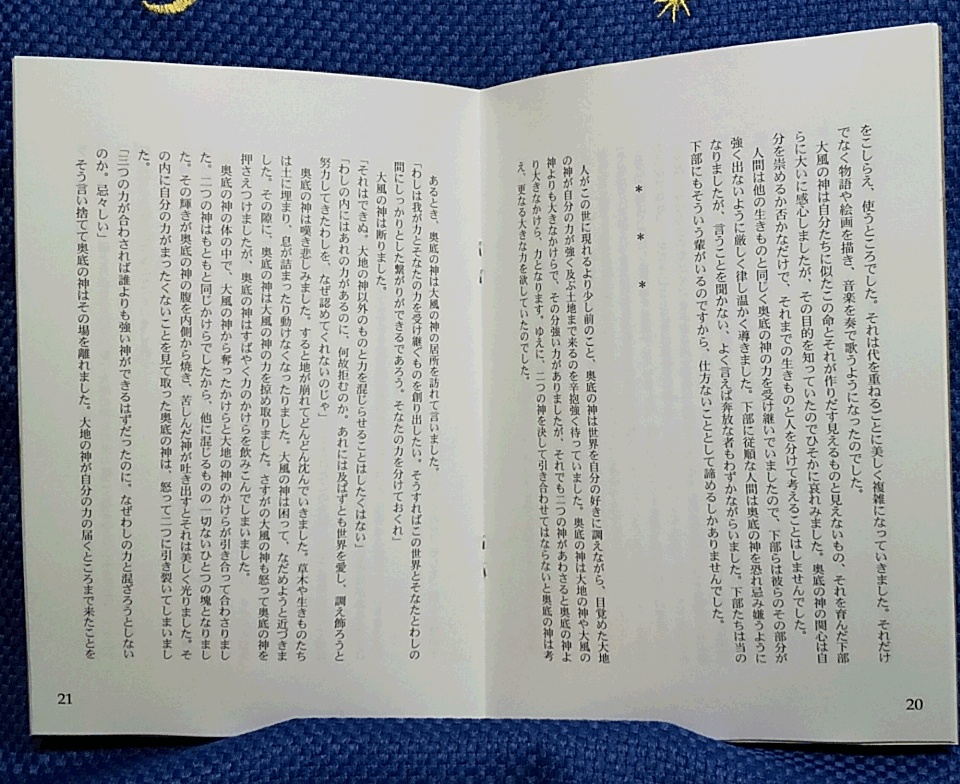 をこしらえ、使うところでした。それは代を重ねるごとに美しく複雑になっていきました。それだけ
でなく物語や絵画を描き、音楽を奏で歌うようになったのでした。
　大風の神は自分たちに似たこの命とそれが作りだす見えるものと見えないもの、それを育んだ下部
らに大いに感心しましたが、その目的を知っていたのでひそかに哀れみました。奥底の神の関心は自
分を崇めるか否かなだけで、それまでの生きものと人を分けて考えることはしませんでした。
　人間は他の生きものと同じく奥底の神の力を受け継いでいましたので、下部らは彼らのその部分が
強く出ないように厳しく律し温かく導きました。下部に従順な人間は奥底の神を恐れ忌み嫌うように
なりましたが、言うことを聞かない、よく言えば奔放な者もわずかながらいました。下部たちは当の
下部にもそういう輩がいるのですから、仕方ないこととして諦めるしかありませんでした。
＊　＊　＊
　人がこの世に現れるより少し前のこと、奥底の神は世界を自分の好きに調えながら、目覚めた大地
の神が自分の力が強く及ぶ土地まで来るのを辛抱強く待っていました。奥底の神は大地の神や大風の
神よりも大きなかけらで、その分強い力がありましたが、それでも二つの神があわさると奥底の神よ
り大きなかけら、力となります。ゆえに、二つの神を決して引き合わせてはならないと奥底の神は考
え、更なる大きな力を欲していたのでした。
20
　あるとき、奥底の神は大風の神の居所を訪れて言いました。
「わしは我が力とそなたの力を受け継ぐものを創り出したい。そうすればこの世界とそなたとわしの
間にしっかりとした繋がりができるであろう。そなたの力を分けておくれ」
　大風の神は断りました。
「それはできぬ。大地の神以外のものと力を混じらせることはしたくはない」
「わしの内にはあれの力があるのに、何故拒むのか。あれには及ばずとも世界を愛し、調え飾ろうと
努力してきたわしを、なぜ認めてくれないのじゃ」
　奥底の神は嘆き悲しみました。すると地が崩れてどんどん沈んでいきました。草木や生きものたち
は土に埋まり、息が詰まったり動けなくなったりました。大風の神は困って、なだめようと近づきま
した。その隙に、奥底の神は大風の神の力を掠め取りました。さすがの大風の神も怒って奥底の神を
押さえつけましたが、奥底の神はすばやく力のかけらを飲みこんでしまいました。
　奥底の神の体の中で、大風の神から奪ったかけらと大地の神のかけらが引き合って合わさりまし
た。二つの神はもともと同じかけらでしたから、他に混じるものの一切ないひとつの塊となりまし
た。その輝きが奥底の神の腹を内側から焼き、苦しんだ神が吐き出すとそれは美しく光りました。そ
の内に自分の力がまったくないことを見て取った奥底の神は、怒って二つに引き裂いてしまいまし
た。
「三つの力が合わされば誰よりも強い神ができるはずだったのに。なぜわしの力と混ざろうとしない
のか。忌々しい」
　そう言い捨てて奥底の神はその場を離れました。大地の神が自分の力の届くところまで来たことを
21